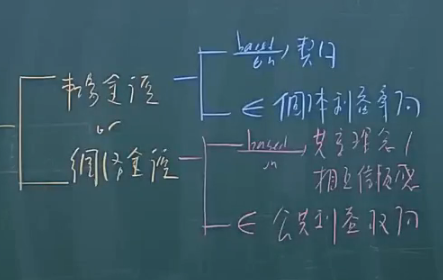 based on 契约
市场金融
∈ 個体利益取向
or
based in 共享理念/
網络金融
相互信赖感
∈ 公共利益取向